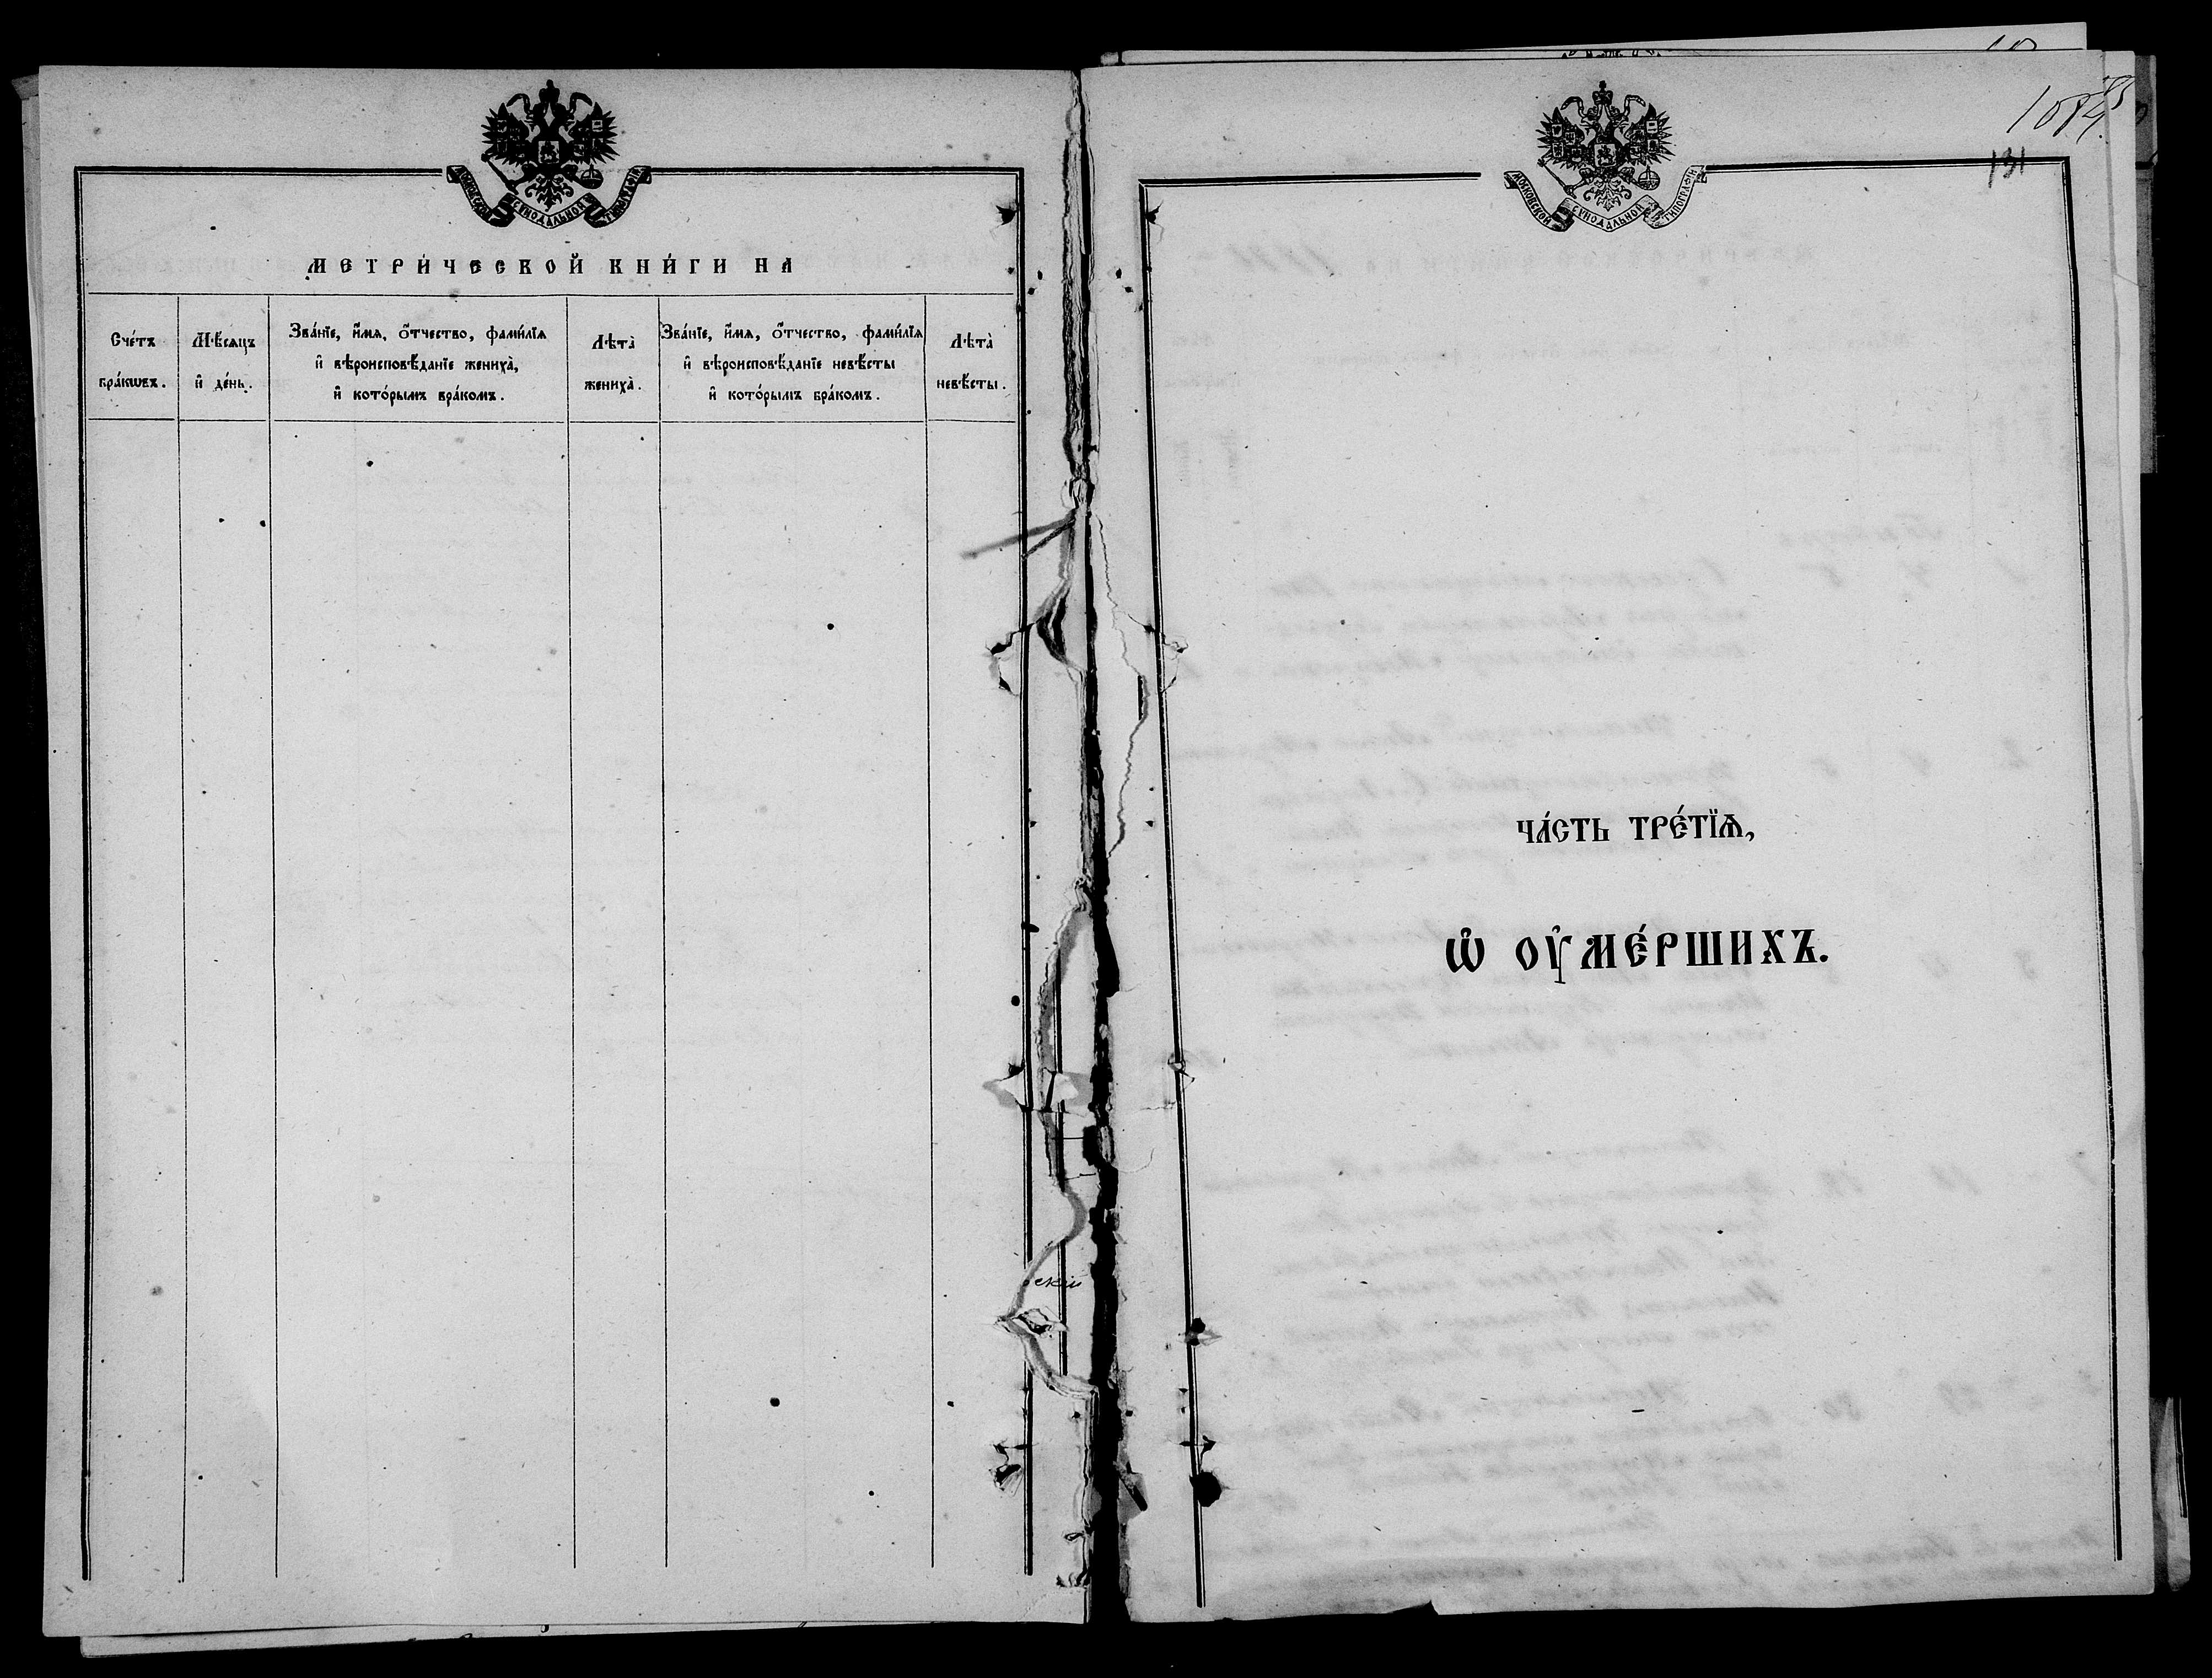 МОСКОВСКОЙ СѴНОДАЛЬНОЙ ТИПОГРАФІИ
МЕТРИ́ЧЕСКОЙ КНИ́ГИ НА
Сче́тъ
бра́кѡвъ.
Мѣ́сяцъ
и҆ де́нь.
Зва́нїе, и҆́мѧ, ѻ҆́тчество, фами́лїѧ
и҆ вѣроисповѣ́данїе жениха̀,
и҆ кото́рымъ бра́комъ.
Лѣта̀
жениха̀.
Зва́нїе, и҆́мѧ, ѻ҆́тчество, фами́лїѧ
и҆ вѣроисповѣ́данїе невѣ́сты
и҆ кото́рымъ бра́комъ.
Лѣта̀
невѣ́сты.
скій
МОСКОВСКОЙ СѴНОДАЛЬНОЙ ТИПОГРАФІИ
131
ЧА́СТЬ ТРЕ́ТЇѦ,
Ѡ҆ ОУ҆МЕ́РШИХЪ.